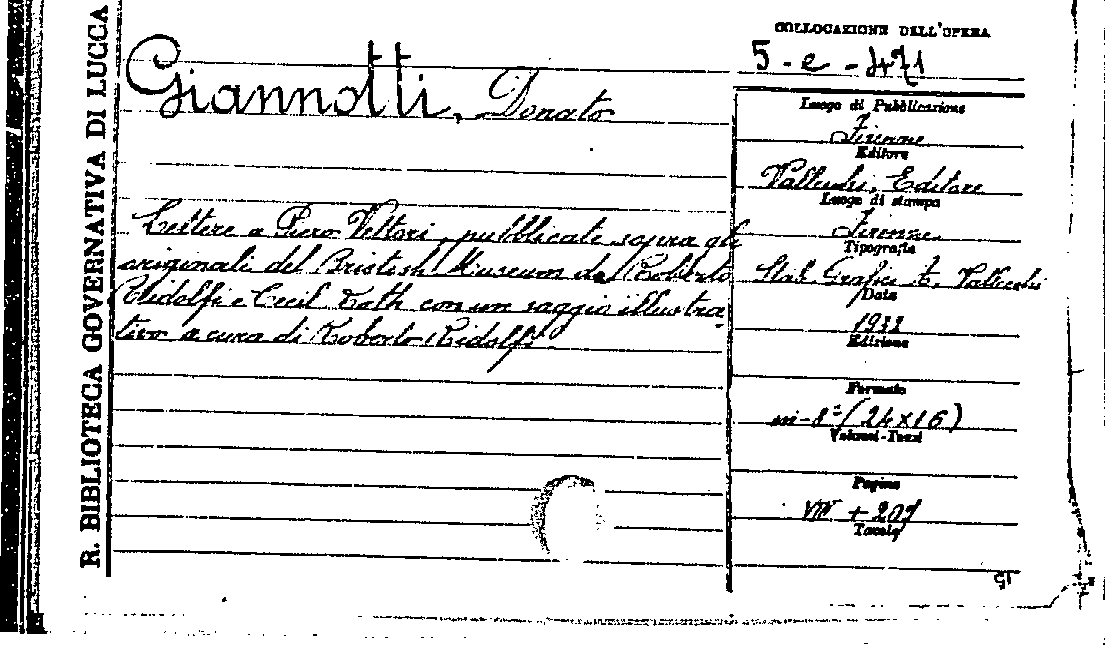 R. BIBLIOTECA GOVERNATIVA DI LUCCA
Giannotti, Donato
Lettere a Piero Vettori, pubblicate sopra gli
originali del Bristish Museum da Roberto
Ridolfi e Cecil Roth con un saggio illustra-
tivo a cura di Roberto Ridolfi
COLLOCAZIONE DELL'OPERA
5-e-471
Luogo di Pubblicazione
Firenze
Editore
Vallecchi, Editore
Luogo di stampa
Firenze
Tipografia
Stab. Grafici A. Vallecchi
Data
1932
Edizione
Formato
in-8° (24x16)
Volumi-Tomi
Pagine
VIII + 207
Tavole
GT